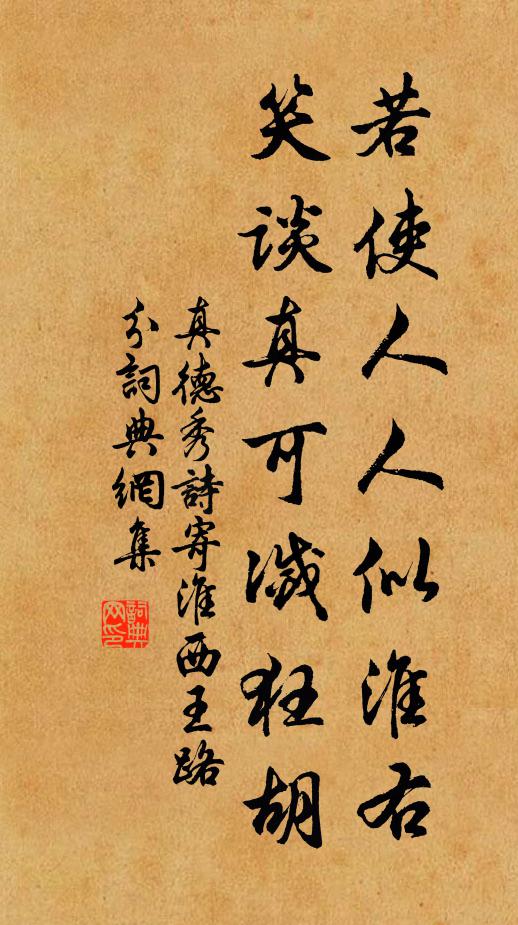 若使人人似淮右
笑談真可滅狂胡
真德秀詩寄淮西王路
分詞典網集
詞典
网印